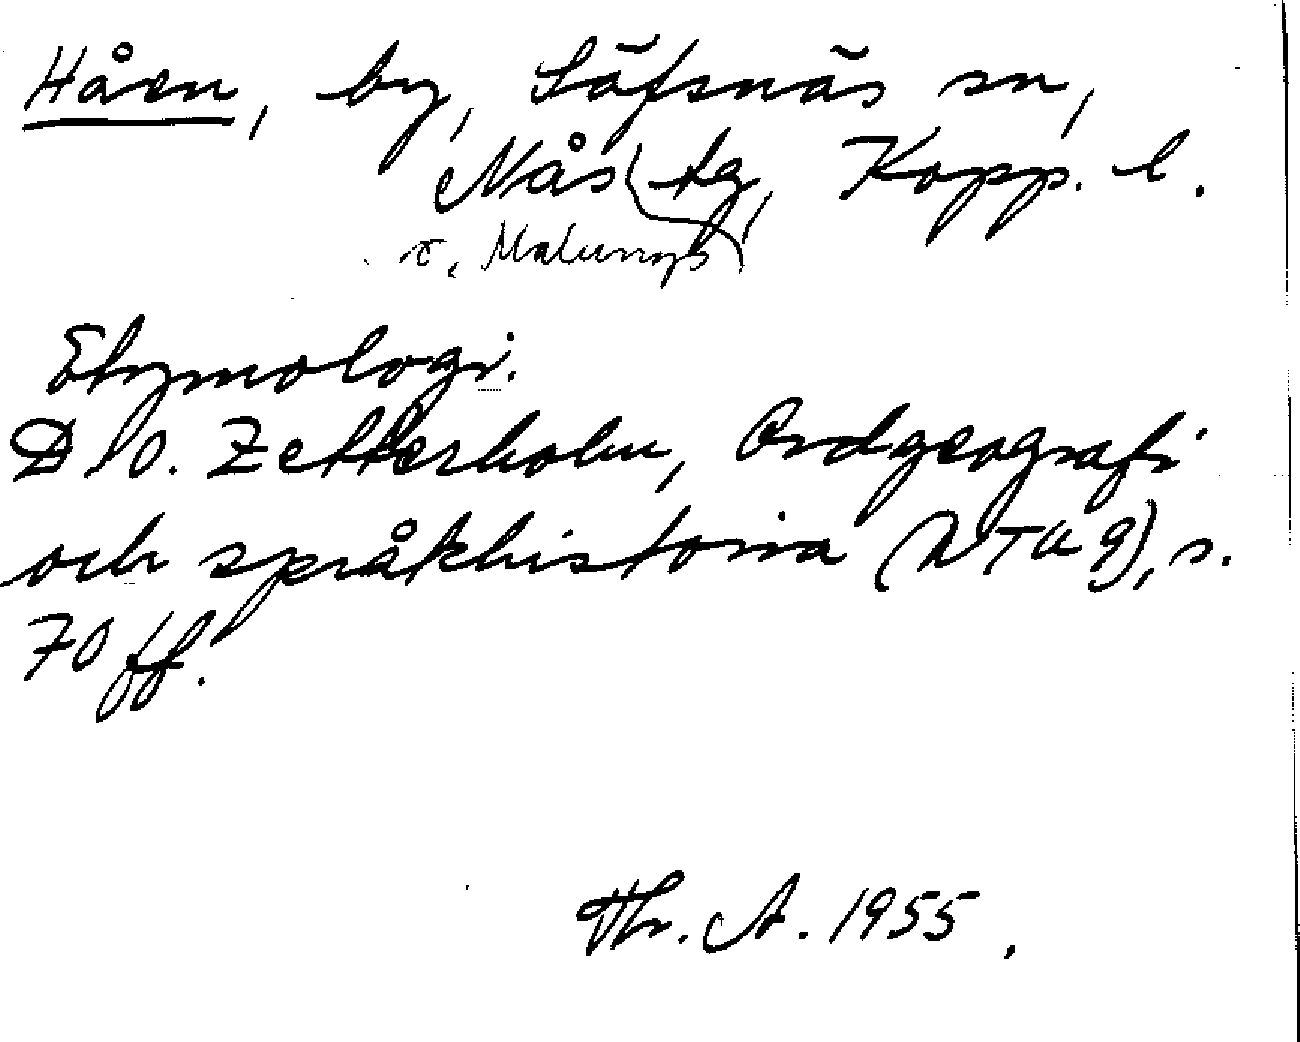 Håen, by, Säfsnäs sn,
Nås tg, Kopp. l.
o. Malungs
Etymologi.
D. O. Zetterholm, Ordgeografi
och språkhistoria (NTU 9), s.
70 ff.
Thr. A. 1955.